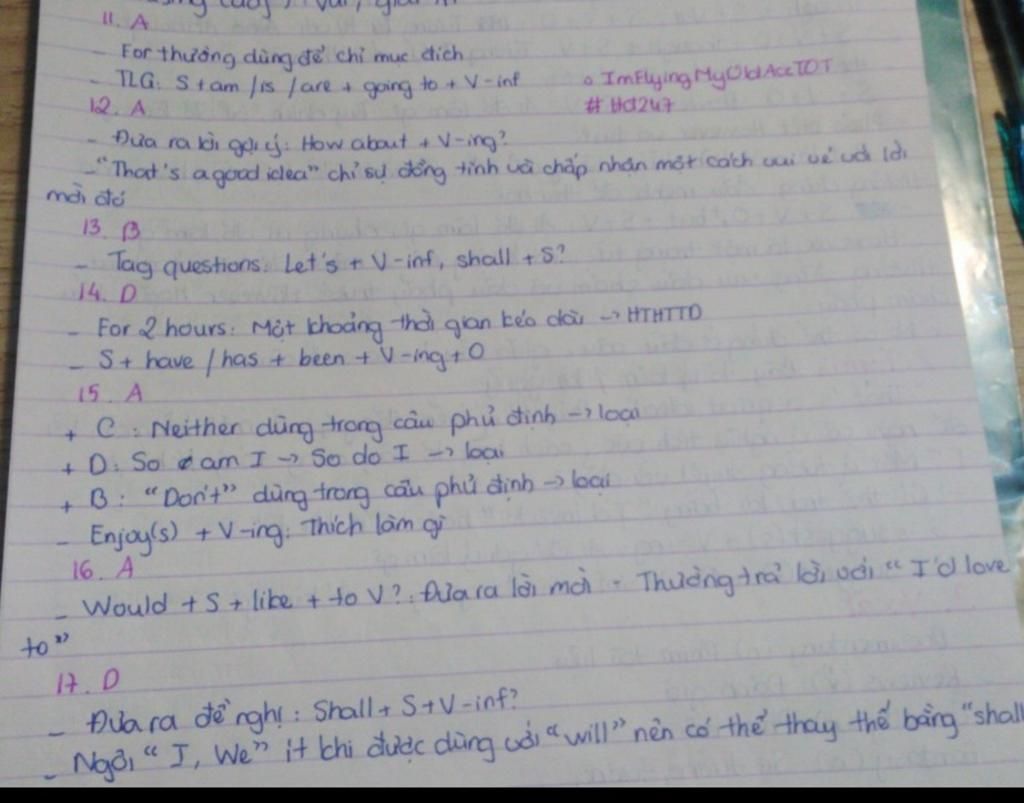 11. A
- For thường dùng để chỉ mục đích
- TLG: S + am / is / are + going to + V-inf
o ImFlyingMyOldAccTOT
# Hd247
12. A
- Đưa ra lời gợi ý: How about + V-ing?
- "That's a good idea" chỉ sự đồng tình và chấp nhận một cách vui vẻ với lời
mời đó
13. B
- Tag questions: Let's + V-inf, shall + S?
14. D
- For 2 hours: Một khoảng thời gian kéo dài → HTHTTD
- S + have / has + been + V-ing + O
15. A
+ C: Neither dùng trong câu phủ định → loại
+ D: So am I → So do I → loại
+ B: "Don't" dùng trong câu phủ định → loại
- Enjoy(s) + V-ing: Thích làm gì
16. A
- Would + S + like + to V?: Đưa ra lời mời - Thường trả lời với "I'd love
to"
17. D
- Đưa ra đề nghị: Shall + S + V-inf?
- Ngôi "I, We" ít khi được dùng với "will" nên có thể thay thế bằng "shall